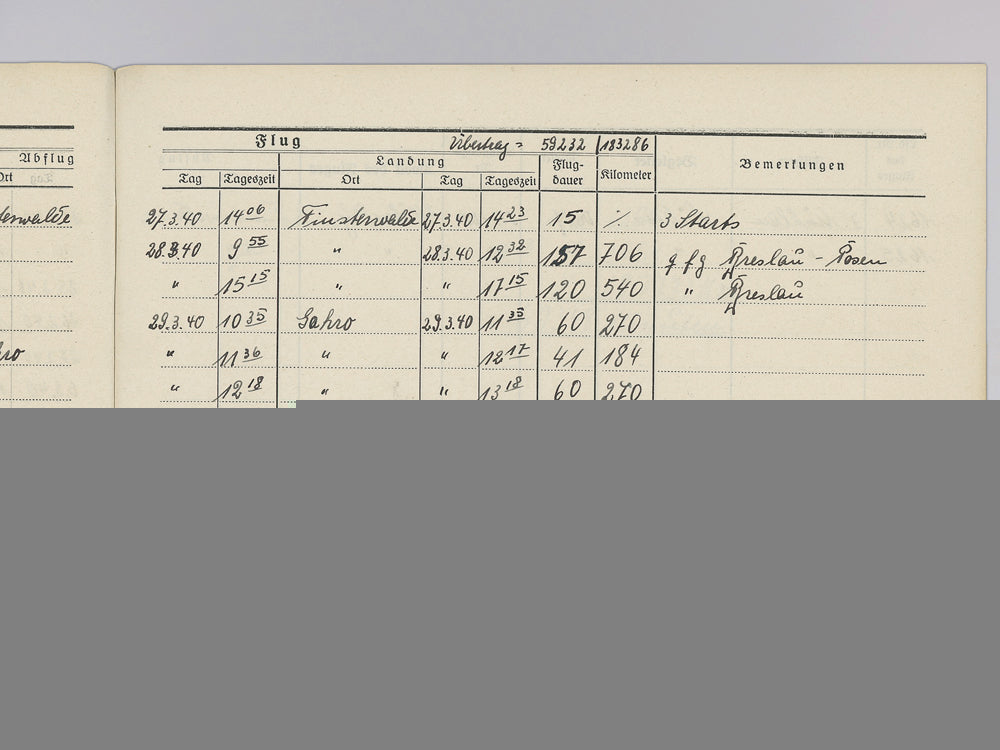 Abflug
Ort
terwalde
hro
Flug Übertrag = 59232 183286
Landung Flug-dauer Kilometer Bemerkungen
Tag Tageszeit Ort Tag Tageszeit
27.3.40 14 06 Finsterwalde 27.3.40 14 23 15 ·/. 3 Starts
28.3.40 9 55 " 28.3.40 12 32 157 706 Breslau - Posen
" 15 15 " " 17 15 120 540 " Breslau
29.3.40 10 35 Gahro 29.3.40 11 35 60 270
" 11 36 " " 12 17 41 184
" 12 18 " " 13 18 60 270